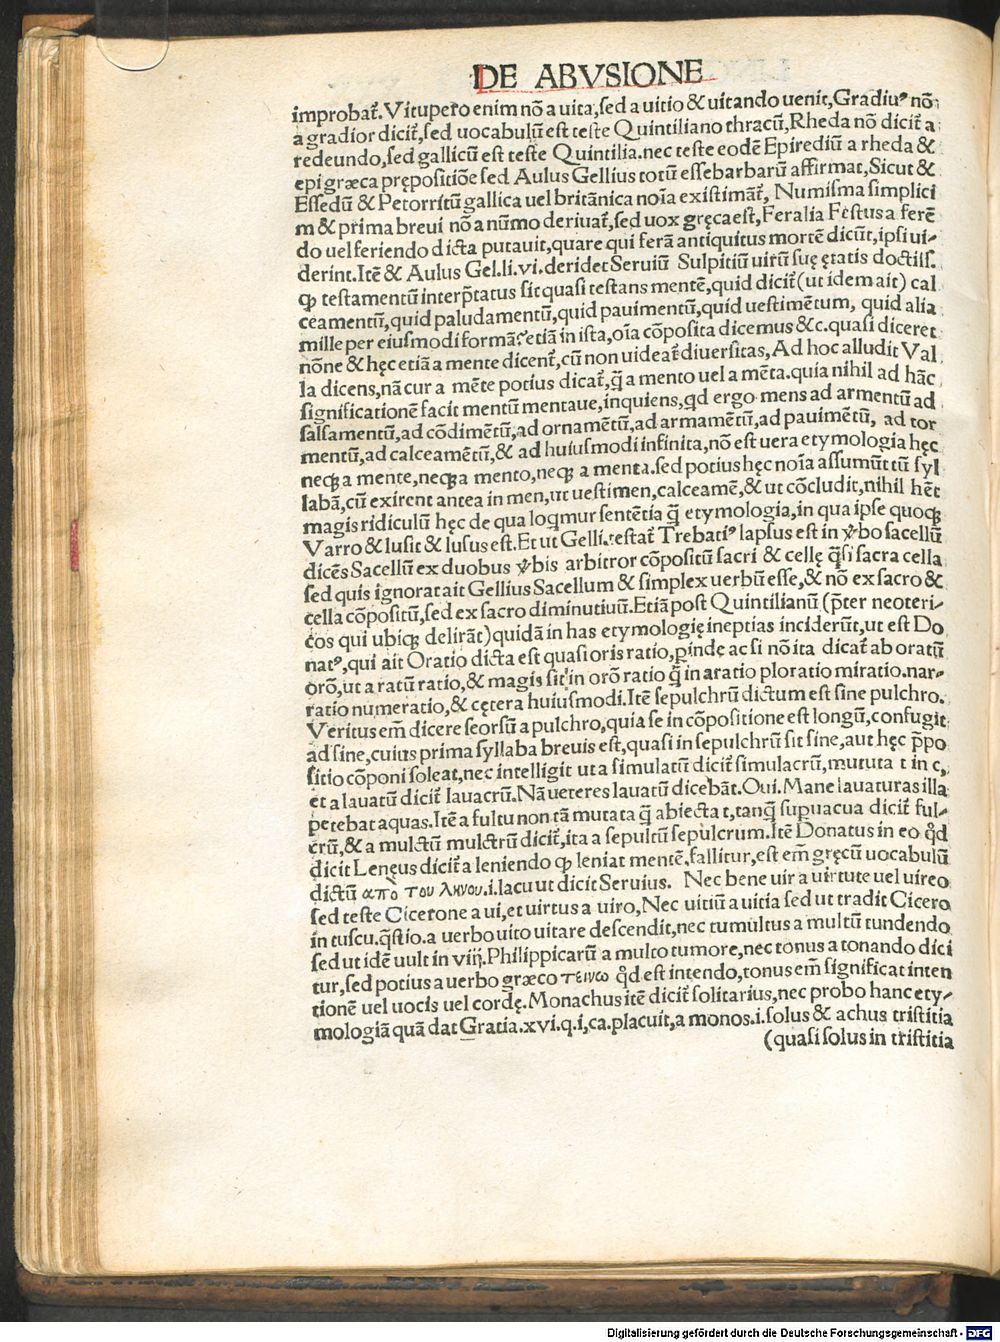 DE ABVSIONE
improbat᷑. Vitupero enim nō a uita, sed a uitio & uitando uenit, Gradiu⁹ nō
a gradior dicit᷑, sed uocabulū est teste Quintiliano thracū, Rheda nō dicit᷑ a
redeundo, sed gallicū est teste Quintilia. nec teste eodē Epirediū a rheda &
epi græca prępositiōe sed Aulus Gellius totū esse barbarū affirmat, Sicut &
Essedū & Petorritū gallica uel britānica noīa existimāt᷑, Numisma simplici
m & prima breui nō a nūmo deriuat᷑, sed uox gręca est, Feralia Festus a ferē
do uel feriendo dicta putauit, quare qui ferā antiquitus mortē dicūt, ipsi ui-
derint. Itē & Aulus Gel. li. vi. deridet Seruiū Sulpitiū uirū suę ętatis doctiss.
ꝙ testamentū interp̄tatus sit quasi testans mentē, quid dicit᷑ (ut idem ait) cal
ceamentū, quid paludamentū, quid pauimentū, quid uestimētum, quid alia
mille per eiusmodi formāᷓ? etiā in ista, oīa cōposita dicemus &c. quasi diceret
nōne & hęc etiā a mente dicent᷑, cū non uideat᷑ diuersitas, Ad hoc alludit Val
la dicens, nā cur a mēte potius dicat᷑, q̄ a mento uel a mēta. quia nihil ad hāc
significationē facit mentū mentaue, inquiens, qd ergo mens ad armentū ad
salsamentū, ad cōdimētū, ad ornamētū, ad armamētū, ad pauimētū, ad tor
mentū, ad calceamētū, & ad huiusmodi infinita, nō est uera etymologia hęc
neqꝫ a mente, neqꝫ a mento, neqꝫ a menta. sed potius hęc noīa assumūt tū syl
labā, cū exirent antea in men, ut uestimen, calceamē, & ut cōcludit, nihil hēt
magis ridiculū hęc de qua loqmur sentētia q̄ etymologia, in qua ipse quoqꝫ
Varro & lusit & lusus est. Et ut Gelli. testat᷑ Trebati⁹ lapsus est in v̓bo sacellū
dicēs Sacellū ex duobus v̓bis arbitror cōpositū sacri & cellę q̄si sacra cella
sed quis ignorat ait Gellius Sacellum & simplex uerbū esse, & nō ex sacro &
cella cōpositū, sed ex sacro diminutiuū. Etiā post Quintilianū (p̄ter neoteri-
cos qui ubiqꝫ delirāt) quidā in has etymologię ineptias inciderūt, ut est Do
nat⁹, qui ait Oratio dicta est quasi oris ratio, ꝑinde ac si nō ita dicat᷑ ab oratū
orō, ut a ratū ratio, & magis sit in orō ratio q̄ in aratio ploratio miratio. nar-
ratio numeratio, & cętera huiusmodi. Itē sepulchrū dictum est sine pulchro.
Veritus em̄ dicere seorsū a pulchro, quia se in cōpositione est longū, confugit
ad sine, cuius prima syllaba breuis est, quasi in sepulchrū sit sine, aut hęc p̄po
sitio cōponi soleat, nec intelligit ut a simulatū dicit᷑ simulacrū, mututa t in c,
et a lauatū dicit᷑ lauacrū. Nā ueteres lauatū dicebāt. Oui. Mane lauaturas illa
petebat aquas. Itē a fultu non tā mutata q̄ abiecta t, tanq̄ supuacua dicit᷑ ful-
crū, & a mulctū mulctrū dicit᷑, ita a sepultū sepulcrum. Itē Donatus in eo qđ
dicit Lenęus dicit᷑ a leniendo ꝙ leniat mentē, fallitur, est em̄ gręcū uocabulū
dictū απὸ του ληνου. i. lacu ut dicit Seruius. Nec bene uir a uirtute uel uireo
sed teste Cicerone a ui, et uirtus a uiro, Nec uitiū a uitia sed ut tradit Cicero
in tuscu. q̄stio. a uerbo uito uitare descendit, nec tumultus a multū tundendo
sed ut idē uult in viij. Philippicarū a multo tumore, nec tonus a tonando dici
tur, sed potius a uerbo græco τεινω qđ est intendo, tonus em̄ significat inten
tionē uel uocis uel cordę. Monachus itē dicit᷑ solitarius, nec probo hanc ety-
mologiā quā dat Gratia. xvi. q. i, ca. placuit, a monos. i. solus & achus tristitia
(quasi solus in tristitia
Digitalisierung gefördert durch die Deutsche Forschungsgemeinschaft - DFG